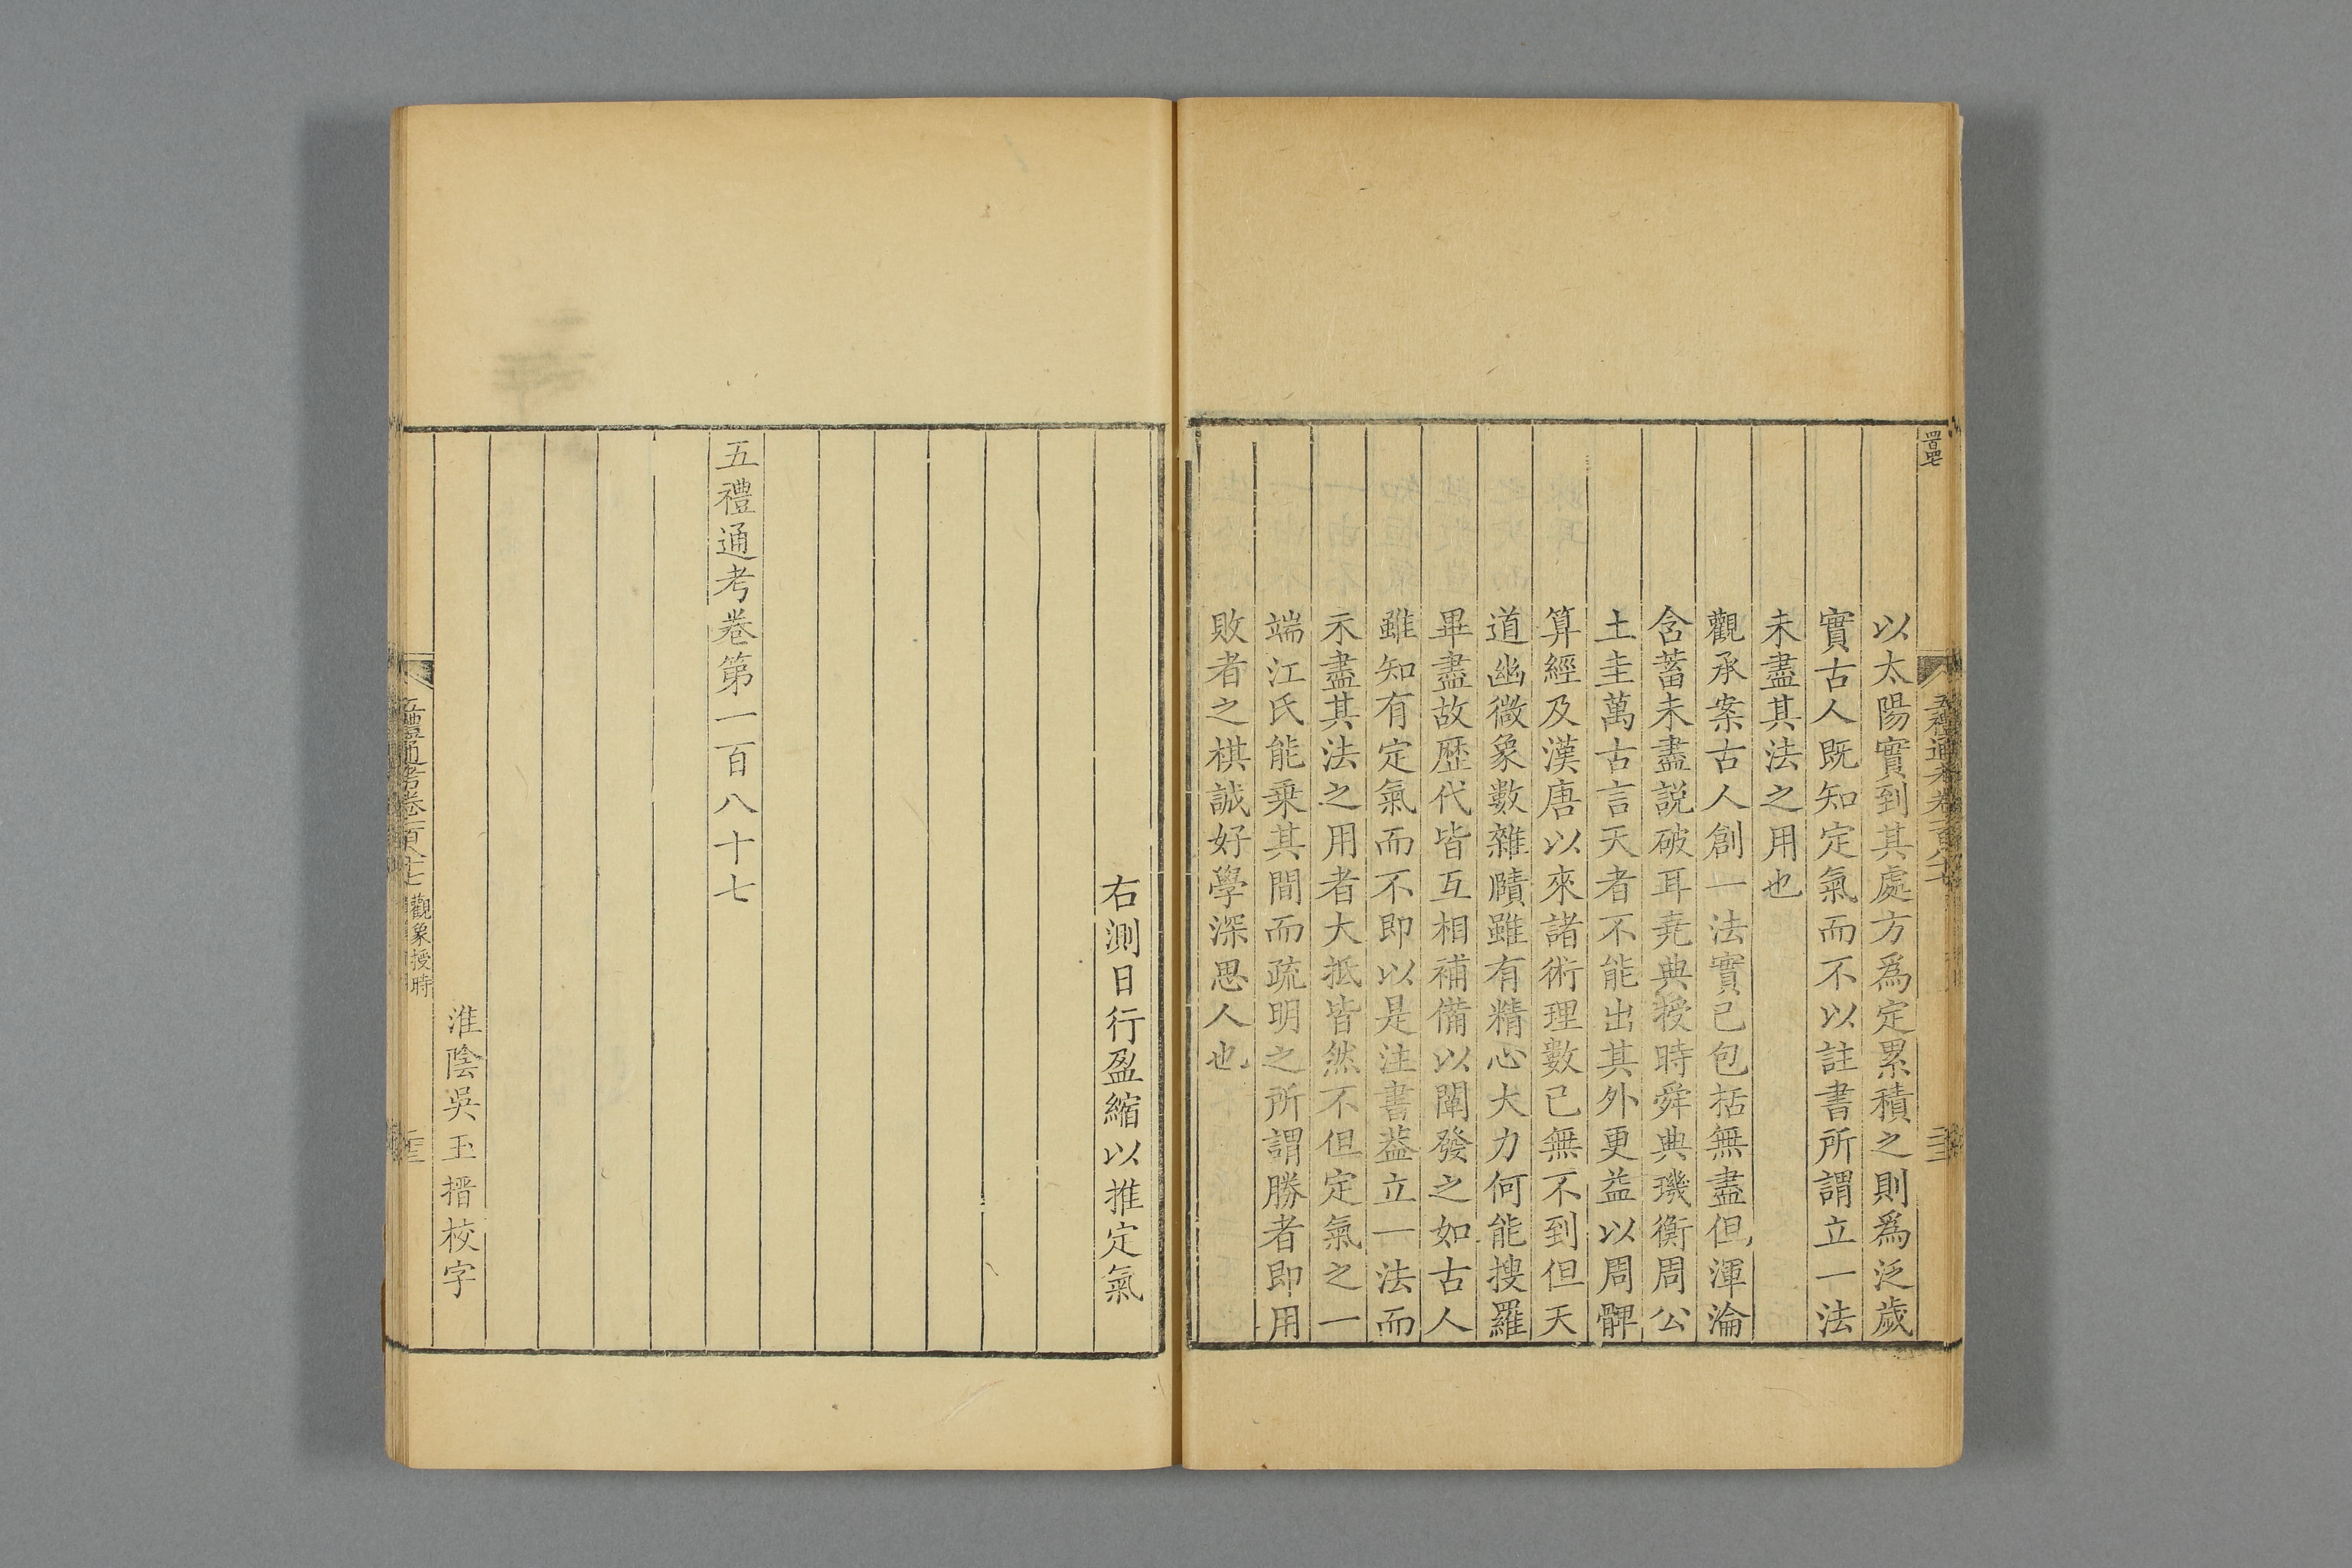 以太陽實到其處方爲定累積之則爲泛歲
實古人既知定氣而不以註書所謂立一法
未盡其法之用也
觀承案古人創一法實已包括無盡但渾淪
含蓄未盡説破耳堯典授時舜典璣衡周公
土圭萬古言天者不能出其外更益以周髀
算經及漢唐以來諸術理數已無不到但天
道幽微象數雜賾雖有精心大力何能搜羅
畢盡故歷代皆互相補備以闡發之如古人
雖知有定氣而不即以是注書葢立一法而
不盡其法之用者大抵皆然不但定氣之一
端江氏能乗其間而疏明之所謂勝者即用
敗者之棋誠好學深思人也
右測日行盈縮以推定氣
五禮通考卷第一百八十七
淮陰吳玉搢校字
五禮通考卷一百八十七 觀象授時